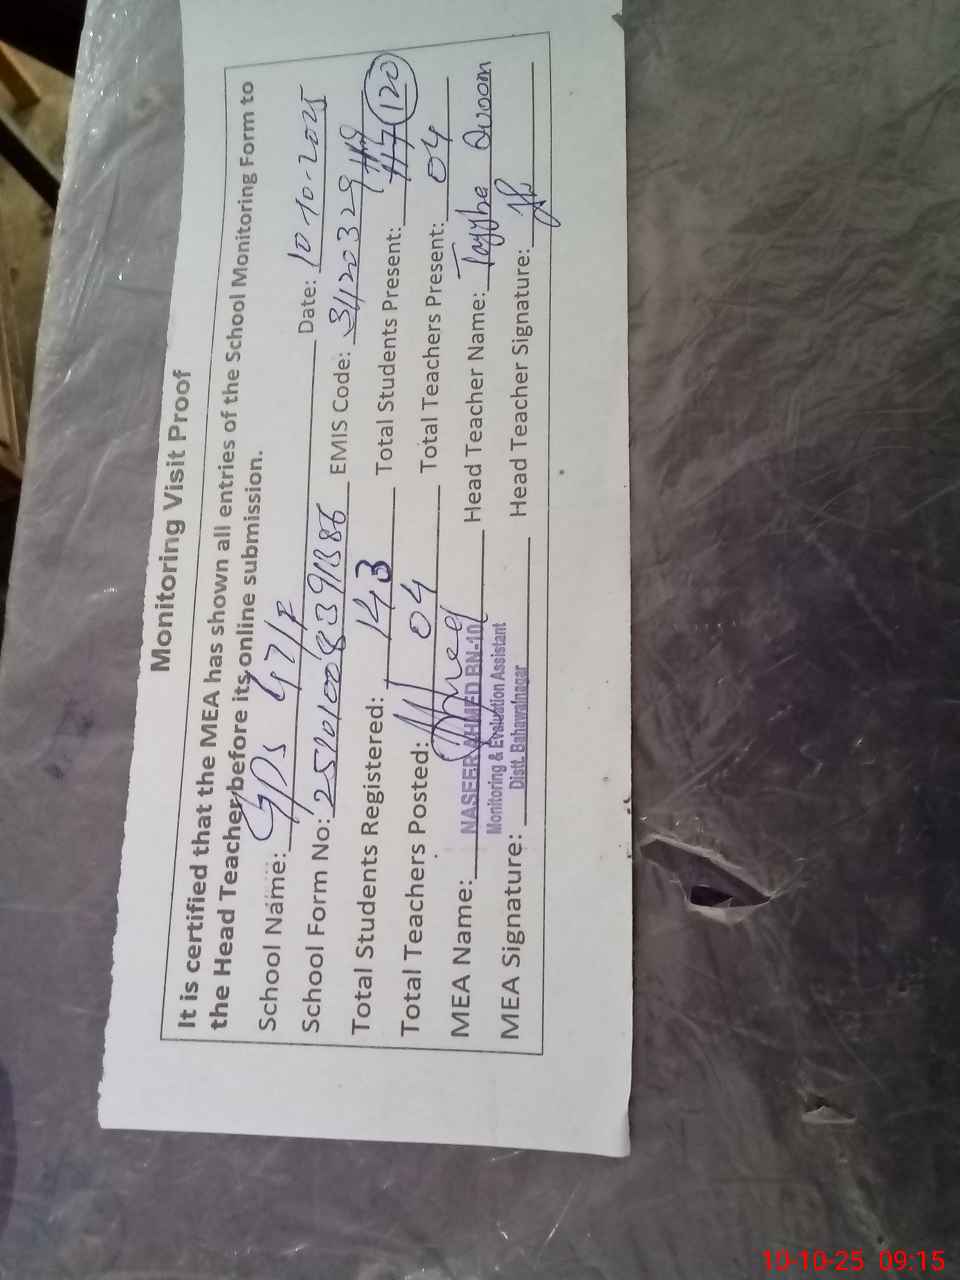 Monitoring Visit Proof
It is certified that the MEA has shown all entries of the School Monitoring Form to
the Head Teacher before its online submission.
School Name: GPS 47/F Date: 10-10-2025
School Form No: EMIS Code: 31120329
Total Students Registered: 143 Total Students Present: 120
Total Teachers Posted: 04 Total Teachers Present: 04
MEA Name: NASEER AHMED BN-10 Head Teacher Name: Tayyba Quoom
Monitoring & Evaluation Assistant
Distt. Bahawalnagar
MEA Signature: Head Teacher Signature:
10-10-25 09:15